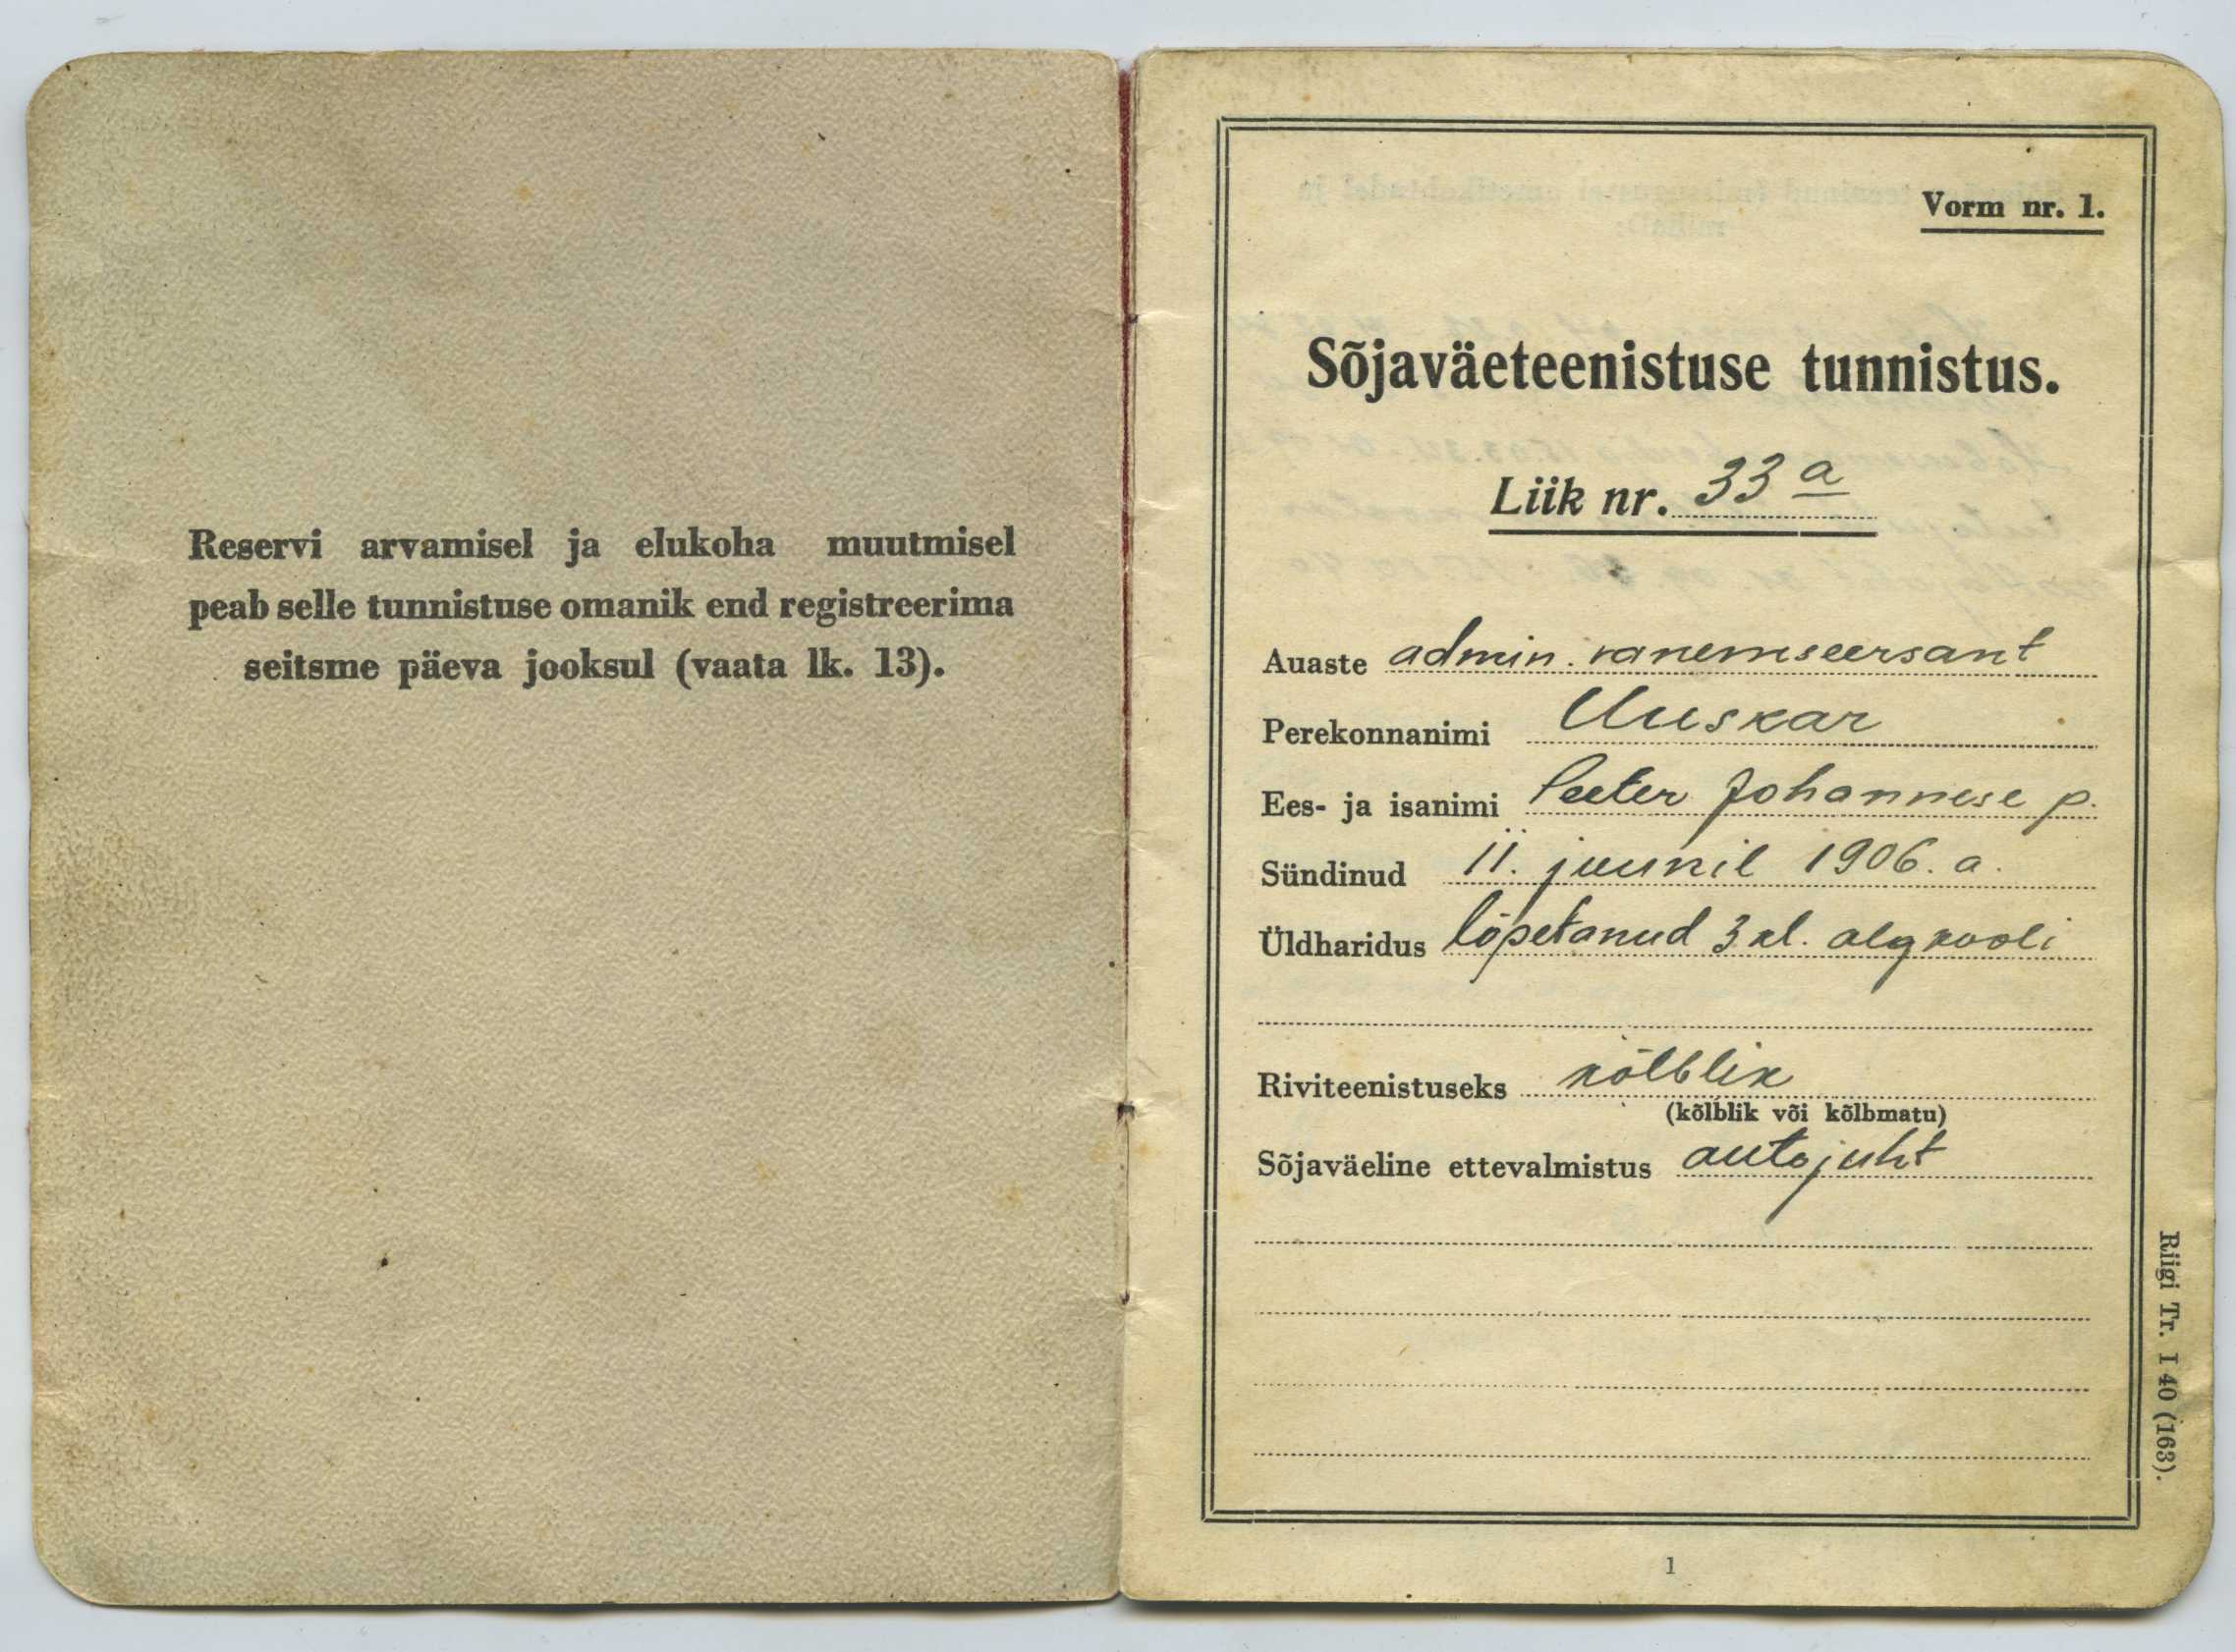 Reservi arvamisel ja elukoha muutmisel
peab selle tunnistuse omanik end registreerima
seitsme päeva jooksul (vaata lk. 13).
Vorm nr. 1.
Sõjaväeteenistuse tunnistus.
Liik nr. 33 a
Auaste admin. vanemseersant
Perekonnanimi Uuskar
Ees- ja isanimi Peeter Johannese p.
Sündinud 11. juunil 1906. a.
Üldharidus lõpetanud 3 kl. algkooli
Riviteenistuseks kõlblik
(kõlblik või kõlbmatu)
Sõjaväeline ettevalmistus autojuht
Riigi Tr. I 40 (163).
1